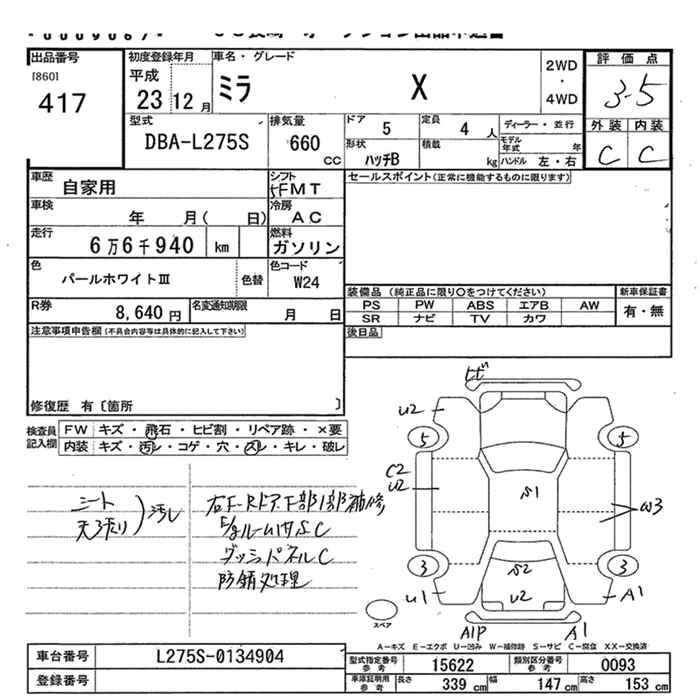 出品番号
[860]
417
初度登録年月
平成
23 12 月
車名・グレード
ミラ X
2WD
・
4WD
評価点
3.5
外装 内装
C C
型式
DBA-L275S
排気量
660
CC
ドア
5
定員
4 人
ディーラー・並行
形状
ハッチB
積載
kg
モデル年式 年
ハンドル 左・右
車歴
自家用
シフト
5FMT
車検
年 月( 日)
冷房
AC
走行
6万6千940 km
燃料
ガソリン
色
パールホワイトIII
色替
色コード
W24
R券
8,640 円
名変通知期限
月 日
セールスポイント(正常に機能するものに限ります)
装備品(純正品に限り○をつけてください)
PS PW ABS エアB AW
SR ナビ TV カワ
新車保証書
有・無
後日品
注意事項申告欄(不具合内容等は具体的に記入して下さい)
修復歴 有〔箇所 〕
検査員
記入欄
FW キズ・飛石・ヒビ割・リペア跡・×要
内装 キズ・汚レ・コゲ・穴・スレ・キレ・破レ
シート
天張り
汚レ
右F-Rドア下部1部補修
ルーム内サビC
ダッシュパネルC
防錆処理
ヒビ
U2
5 5
C2
U2
S1
W3
3 3
S2
U2
U1
A1
A1P A1
スペア
A-キズ E-エクボ U-凹み W-補修跡 S-サビ C-腐食 XX-交換済
車台番号
L275S-0134904
登録番号
型式指定番号
参考
15622
類別区分番号
参考
0093
車庫証明用
参考
長さ 339 cm 幅 147 cm 高さ 153 cm